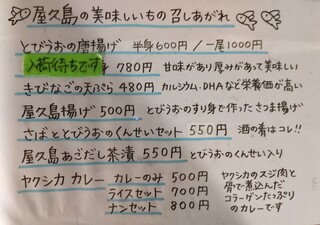 屋久島の美味しいもの召しあがれ
とびうおの唐揚げ 半身600円 / 一尾1000円
入荷待ちです 780円 甘味があり厚みがあって美味しい
きびなごの天ぷら 480円 カルシウム、DHAなど栄養価が高い
屋久島揚げ 500円 とびうおのすり身で作ったさつま揚げ
さばととびうおのくんせいセット 550円 酒の肴はコレ!!
屋久島あごだし茶漬 550円 とびうおのくんせい入り
ヤクシカ カレー カレーのみ 500円 ヤクシカのスジ肉と
ライスセット 700円 骨で煮込んだ
コラーゲンたっぷり
ナンセット 800円 のカレーです